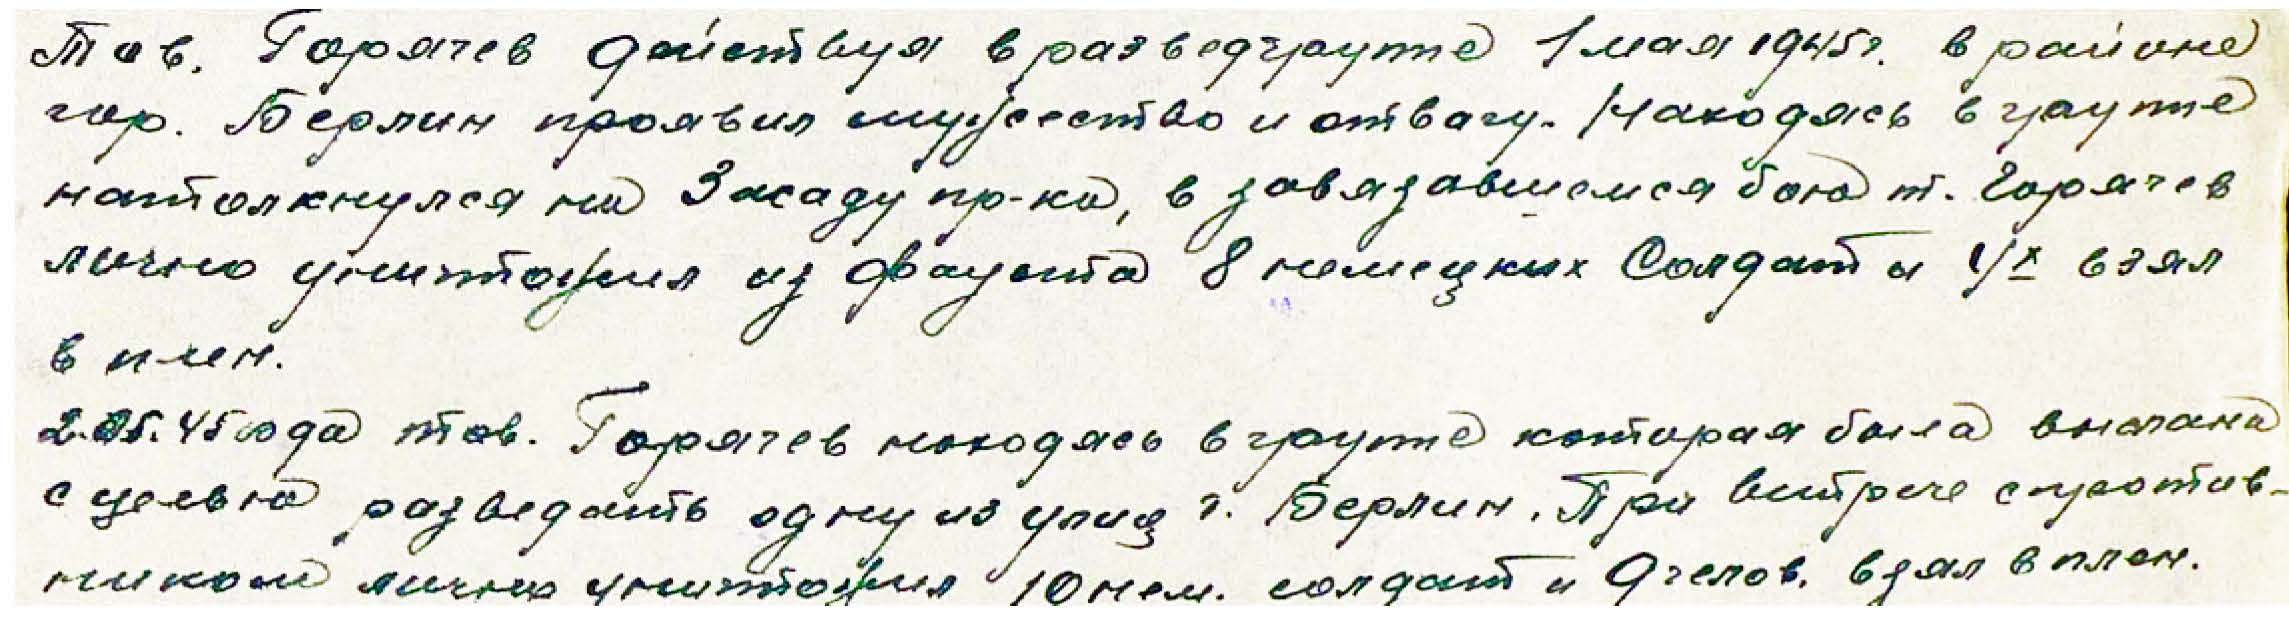 Тов. Горячев действуя в разведгруппе 1 мая 1945г. в районе
гор. Берлин проявил мужество и отвагу. Находясь в группе
натолкнулся на Засаду пр-ка, в завязавшемся бою т. Горячев
лично уничтожил из фауста 8 немецких Солдат и 4х взял
в плен.
2.05.45 года тов. Горячев находясь в группе которая была выслана
с целью разведать одну из улиц г. Берлин. При встрече с против-
ником лично уничтожил 10 нем. солдат и 9 челов. взял в плен.